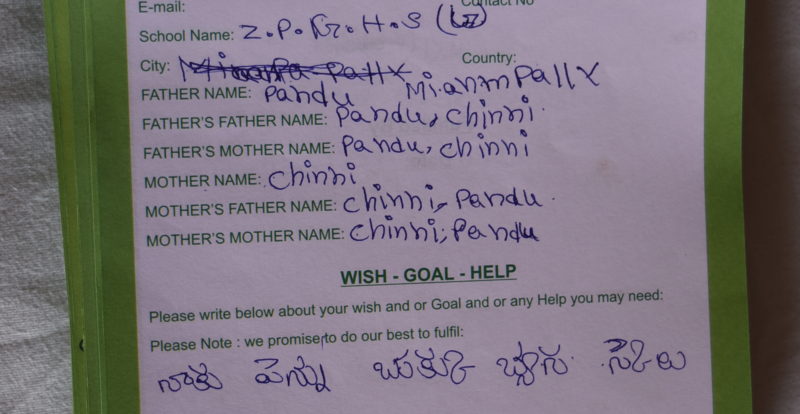 E-mail: Contact No
School Name: Z.P.G.H.S
City: Country:
FATHER NAME: Pandu MianmPallY
FATHER'S FATHER NAME: Pandu, Chinni.
FATHER'S MOTHER NAME: Pandu, Chinni
MOTHER NAME: Chinni
MOTHER'S FATHER NAME: Chinni, Pandu.
MOTHER'S MOTHER NAME: Chinni, Pandu
WISH - GOAL - HELP
Please write below about your wish and or Goal and or any Help you may need:
Please Note : we promise to do our best to fulfil:
నాకు పెన్ను బుక్కు బ్యాగు స్కెలు